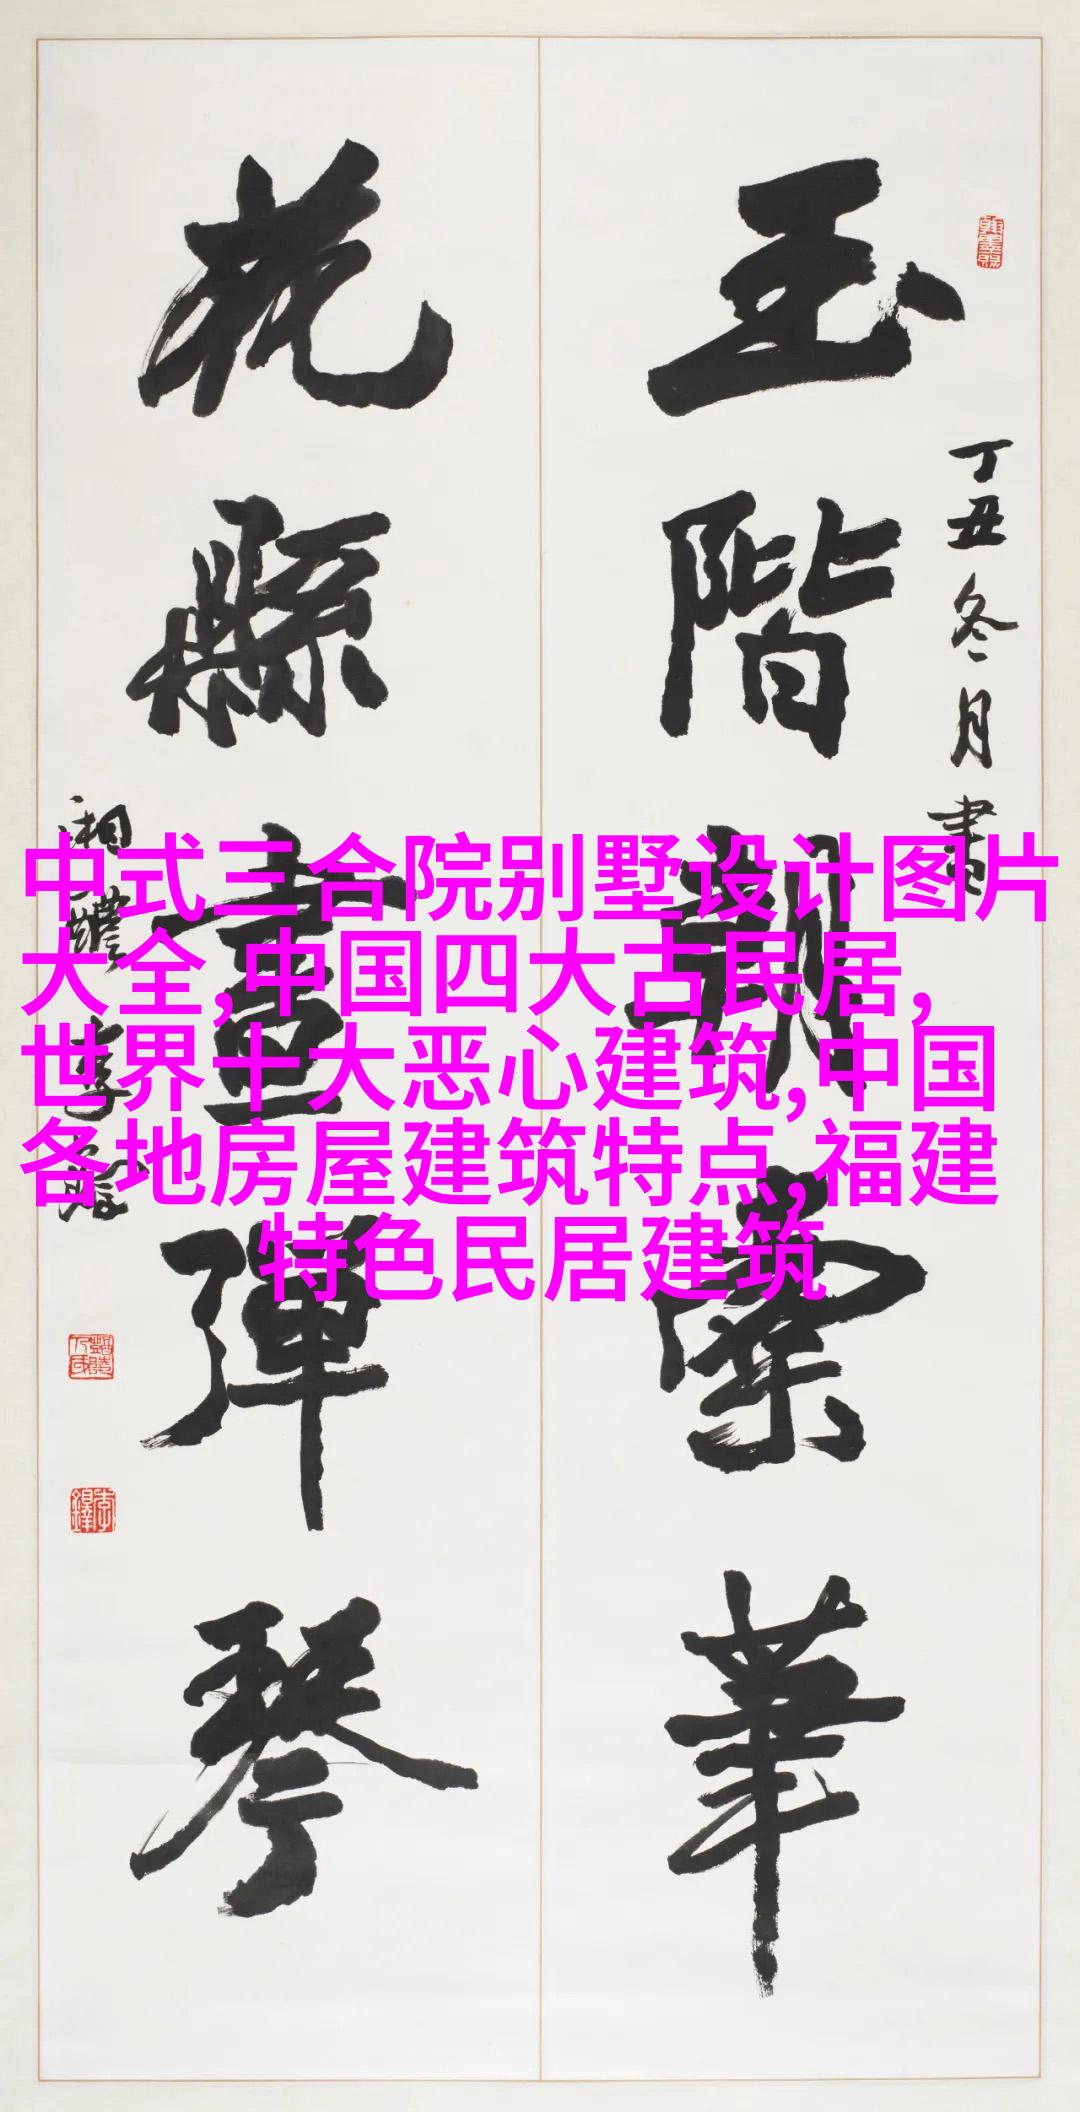 玉階朝縈華
丁丑冬月書
花縣畫彈琴
湘醴李鐸
中式三合院别墅设计图片
大全,中国四大古民居,
世界十大恶心建筑,中国
各地房屋建筑特点,福建
特色民居建筑